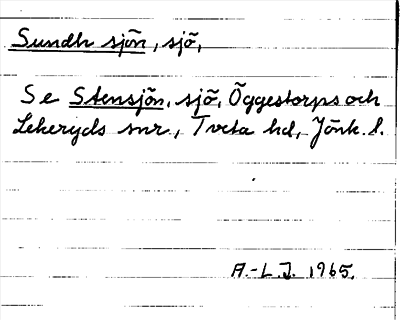 Sundh sjön, sjö,
Se Stensjön, sjö, Öggestorps och
Lekeryds snr., Tveta hd, Jönk. l.
A.-L.J. 1965.